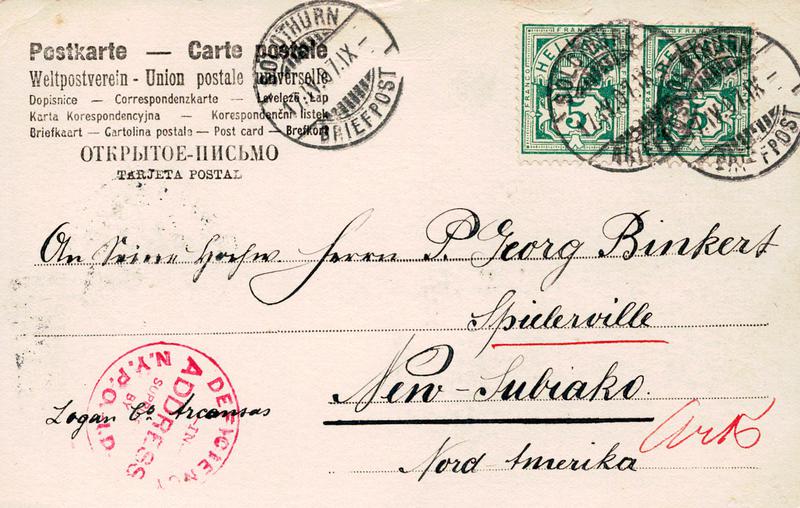 Postkarte — Carte postale
Weltpostverein - Union postale universelle
Dopisnice — Correspondenzkarte — Levelező Lap
Karta Korespondencyjna — Korespondenční listek
Briefkaart — Cartolina postale — Post card — Brefkort
ОТКРЫТОЕ-ПИСЬМО
TARJETA POSTAL
SOLOTHURN
BRIEFPOST
FRANCO HELVETIA
5
5
BRIEFPOST
An Seine Hochw Herrn P. Georg Binkert
Spielerville
New-Subiako.
Logan Co Arcansas
Ark
Nord Amerika
DEFICIENCY IN
ADDRESS
SUPPLIED BY
N.Y.P.O.